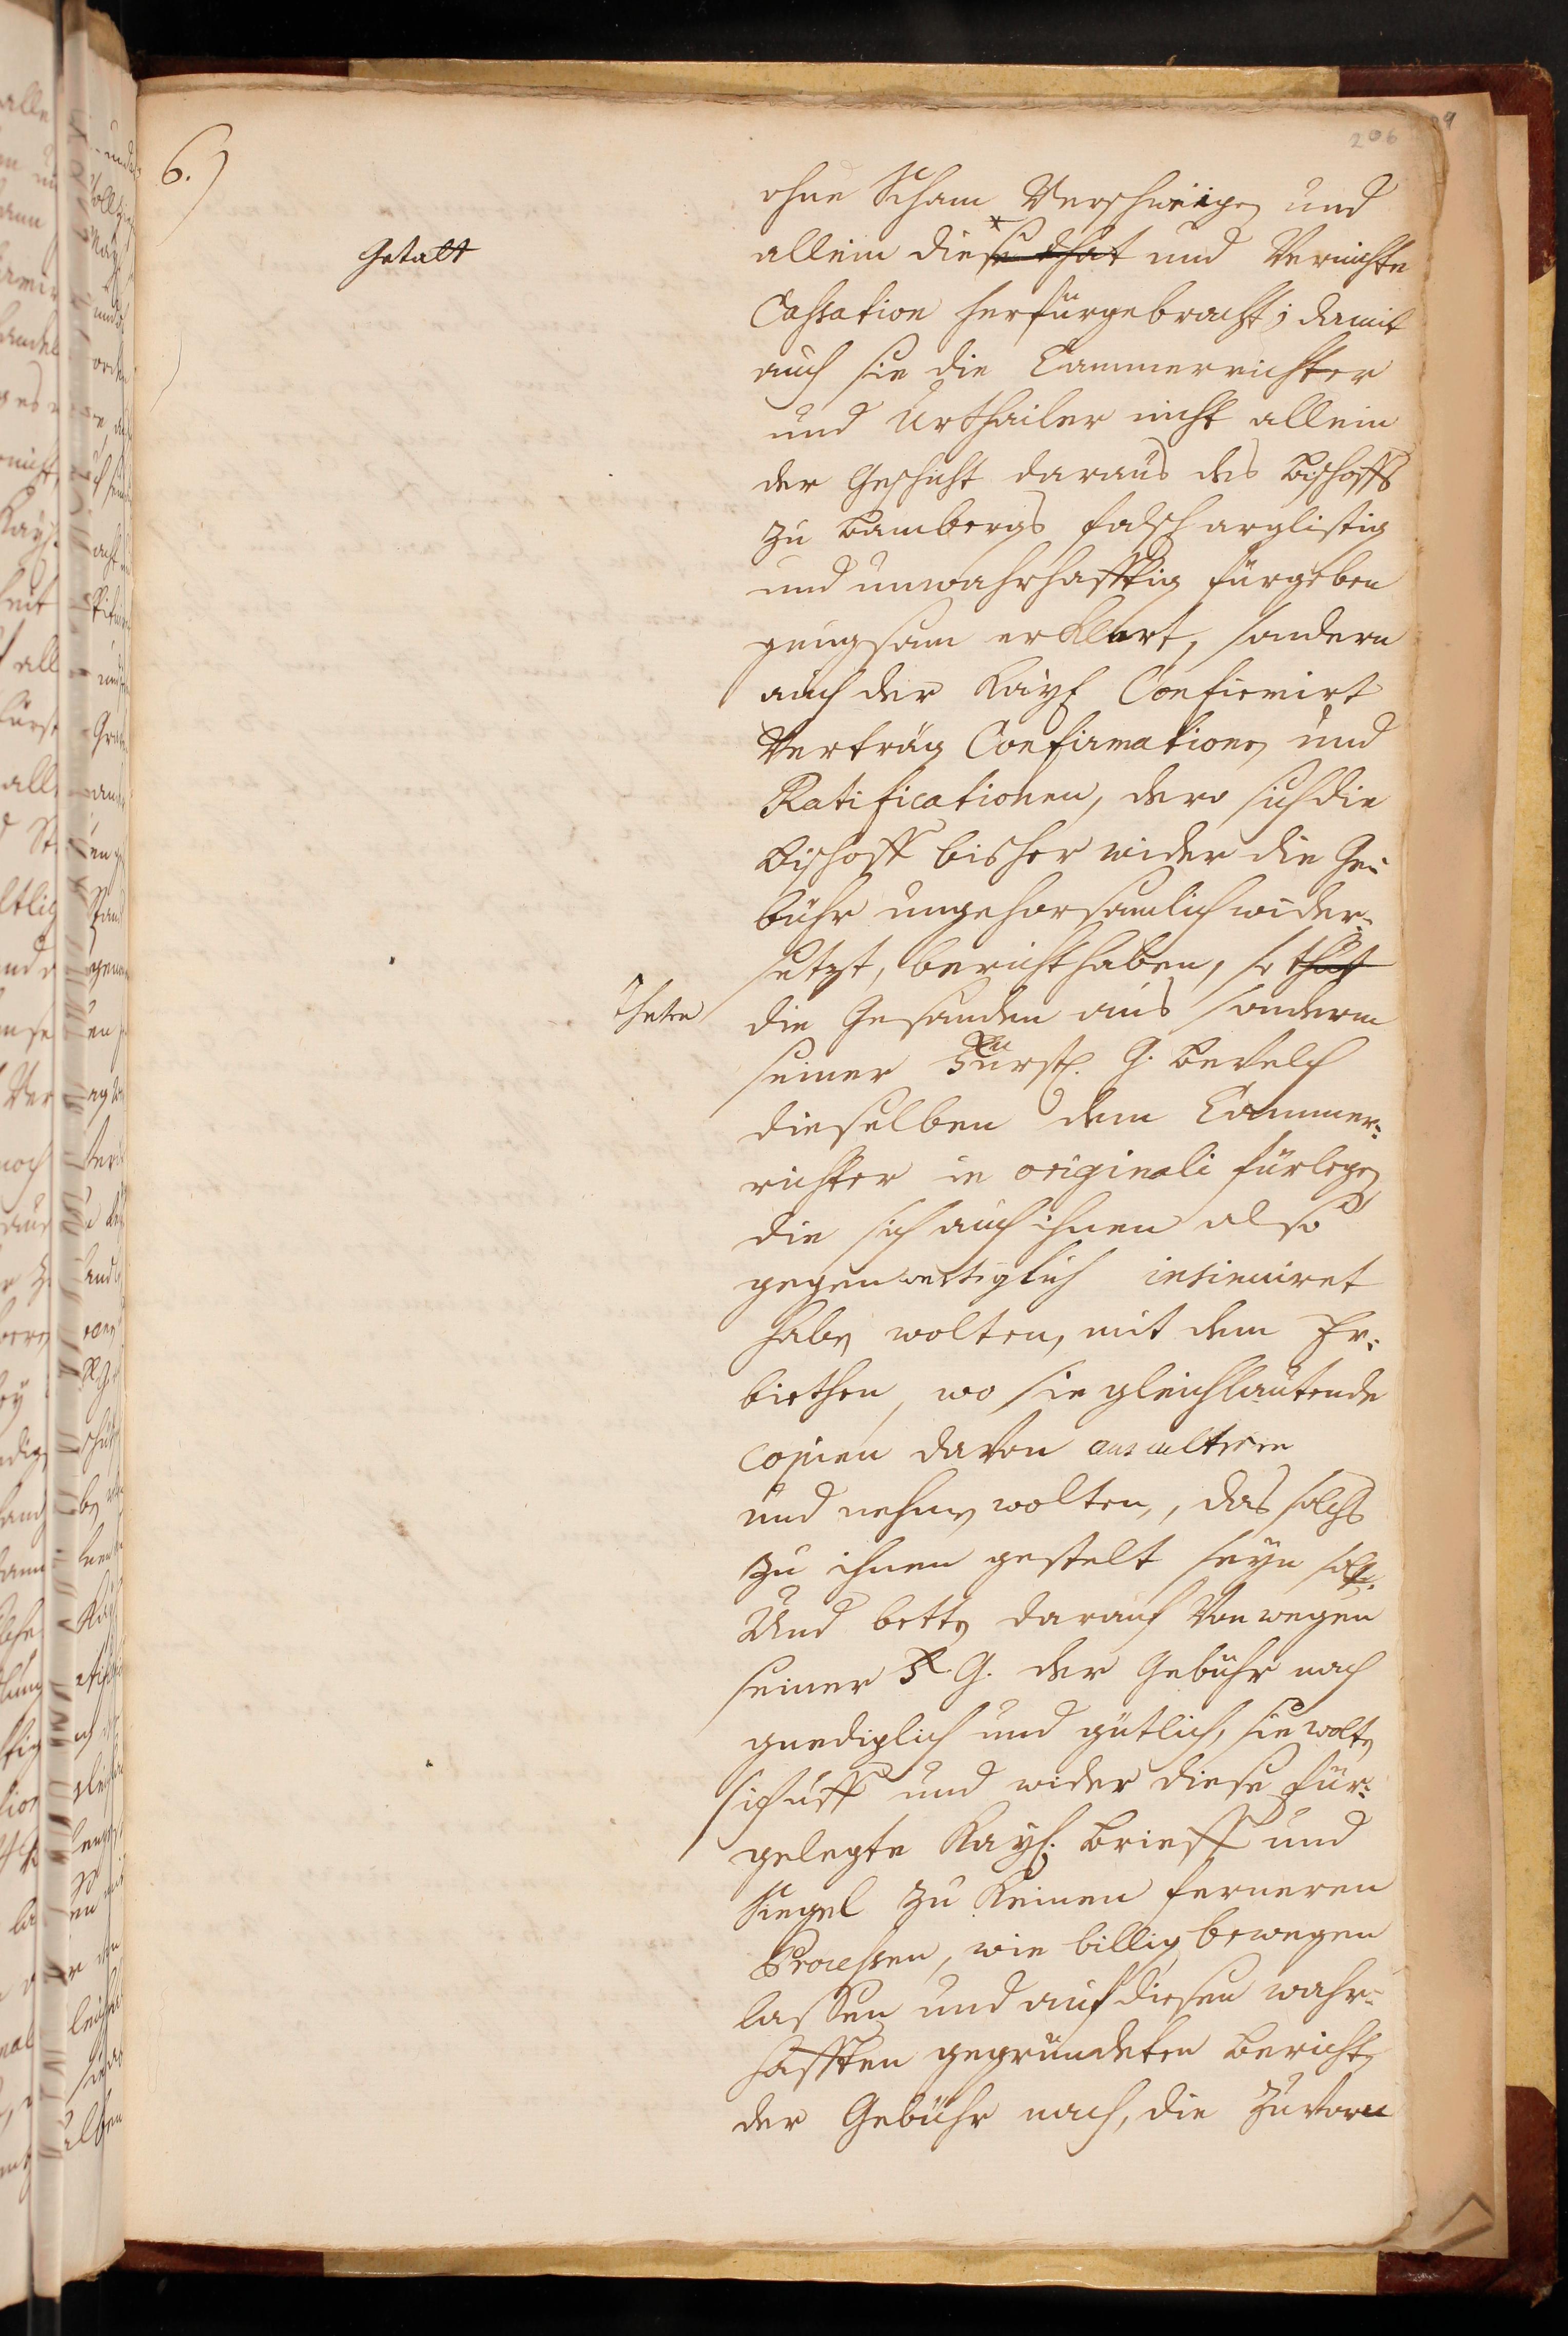 6.)
206
ohne Scham Verschweigen und
Getatt
allein diese that und Vernichte
Cassation herfürgebracht; damit
auch sie die Cammerrichter
und Urthailer nicht allein
der Geschicht daraus des Bischoffs
zu Bambergs falsch arglistig
und unwahrhafftig fürgeben
genugsam erklert, sondern
auch der Kayß Confirmirt
Verträg Confirmationen und
Ratificationen, dero sich die
Bischoff bisher wider die Ge-
bühr ungehorsamlich wider-
setzt, bericht haben, so that
Theten
die Gesanden aus sonderm
seiner Fürstl. G. Bevelch
dieselben dem Cammer-
richter in originali fürlegen
die sich auch ihnen also
gegenwertiglich insinuiret
haben wolten, mit dem Er-
biethen, wo sie gleichlautende
Copien davon auscultiren
und nehmen wolten, das solchs
zu ihnen gestelt seyn solt.
Und betten darauf von wegen
seiner F. G. der Gebühr nach
gnediglich und gütlich, sie wolten
sich uff und wider diese für-
gelegte Kayß. Brieff und
Siegel zu keinen ferneren
Processen, wie billig bewegen
lassen und auf diesen wahr-
hafften gegründeten Bericht,
der Gebühr nach, die Zuvorn